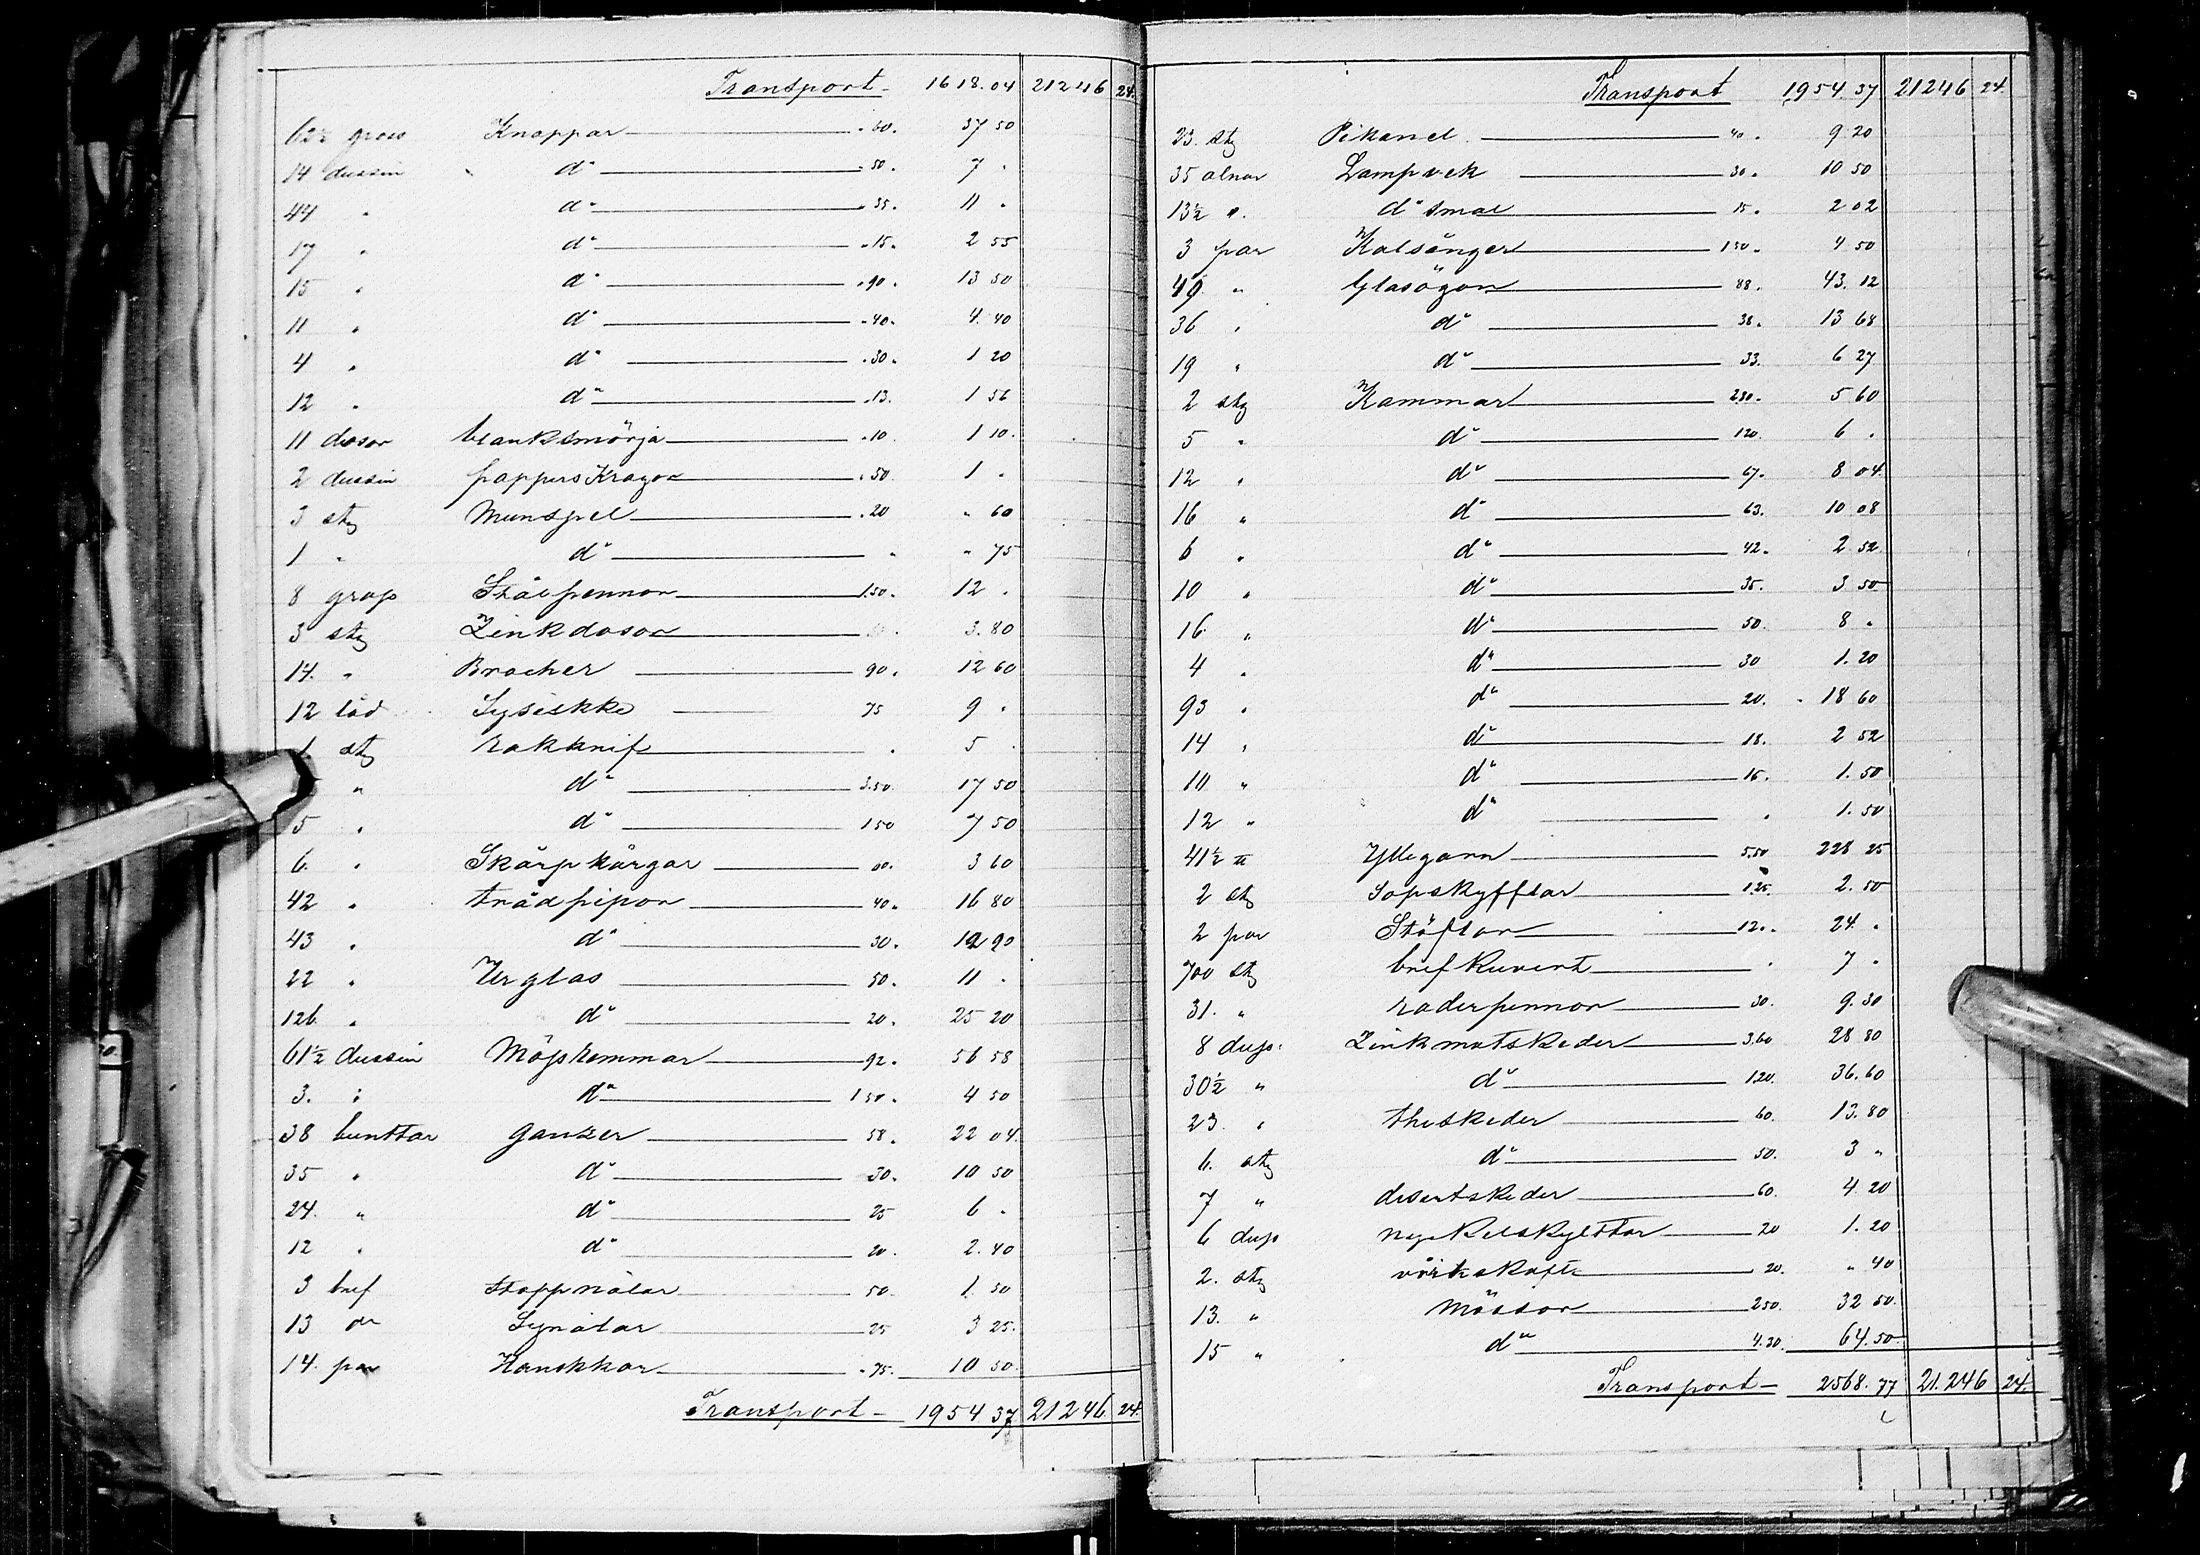 Transport - 1618.04 21246 24.
62½ gross Knappar .60. 37 50
14 dussin d° .50. 7 .
44 " d° .35. 11 .
17 " d° .15. 2 55
15 " d° .90. 13 50
11 " d° .40. 4.40
4 " d° .30. 1 20
12 " d° .13. 1 56
11 dosor blanksmörja .10 1 10.
2 dussin papperskragar .50 1 .
3 stg Munspel .20 " 60
1 " d° " " 75
8 gross Stålpennor 1.50. 12 .
3 stg Zinkdosor 3.80
14. " Brocher 90. 12 60
12 lod Sysilke 75 9 .
1 stg rakknif . 5 .
" d° 3.50. 17 50
5 " d° 150 7 50
6. " Skärpkårgar 60. 3 60
42 " trädpipor 40. 16 80
43 " d° 30. 12 90
22 " Urglas 50. 11 .
126 " d° 20. 25 20
61½ dussin Mösskammar 92. 56 58
3. " d° 150. 4 50
38 buntar ganzer 58. 22 04
35 " d° 30. 10 50
24. " d° 25 6 .
12 " d° 20. 2.40
3 bref stoppnålar 50. 1.50
13 d° Synålar 25 3 25.
14. par Hanskkar .75. 10 50
Transport - 1954 37 21246 24.
Transport 1954.37 21246 24.
23. stg Pikanel 40. 9 20
35 alnar Lampvek 30. 10 50
13½ " d° smal 15. 2 02
3 par Kalsånger 150. 4 50
49 " Glasögon 88. 43.12
36 " d° 38. 13 68
19 " d° 33. 6 27
2 stg Kammar 280. 5 60
5 " d° 120. 6 .
12 " d° 67. 8 04.
16 " d° 63. 10 08
6 " d° 42. 2 52
10 " d° 35. 3 50
16. " d° 50. 8 .
4 " d° 30 1.20
93 " d° 20. 18 60
14 " d° 18. 2 52
10 " d° 15. 1.50
12 " d° . 1.50
41½ ℔ Yllegarn 5.50 228 25
2 stg Sopskyfflar 1.25. 2.50
2 par Stöflar 12.. 24. .
700 stg brefkuvert . 7 .
31. " raderpennor 30. 9.30
8 duss. Zinkmatskeder 3.60 28 80
30½ " d° 1.20. 36.60
23. " theskeder 60. 13.80
6. stg d° 50. 3 "
7 " desertskeder 60. 4.20
6 duss nyckelskyltar 20 1.20
2. stg skaft 20. " 40
13. " Mössor 250. 32 50.
15 " d° 4.30. 64.50
Transport - 2568.77 21.246 24.